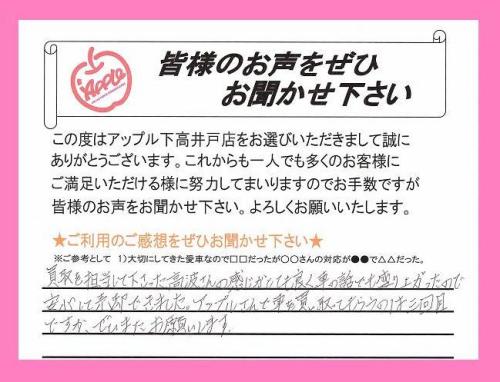 Apple
皆様のお声をぜひ
お聞かせ下さい
この度はアップル下高井戸店をお選びいただきまして誠に
ありがとうございます。これからも一人でも多くのお客様に
ご満足いただける様に努力してまいりますのでお手数ですが
皆様のお声をお聞かせ下さい。よろしくお願いいたします。
★ご利用のご感想をぜひお聞かせ下さい★
※ご参考として 1)大切にしてきた愛車なので□□だったが○○さんの対応が●●で△△だった。
買取を担当して下さった高波さんの感じがとても良く車の話でも盛り上がったので
安心して売却できました。アップルさんで車を買い取ってもらうのは三回目
ですが、ぜひまたお願いします。